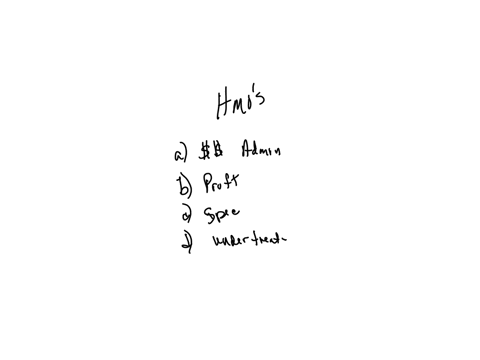 HMO's
a) $$ Admin
b) Proft
c) Spec
d) undertreat